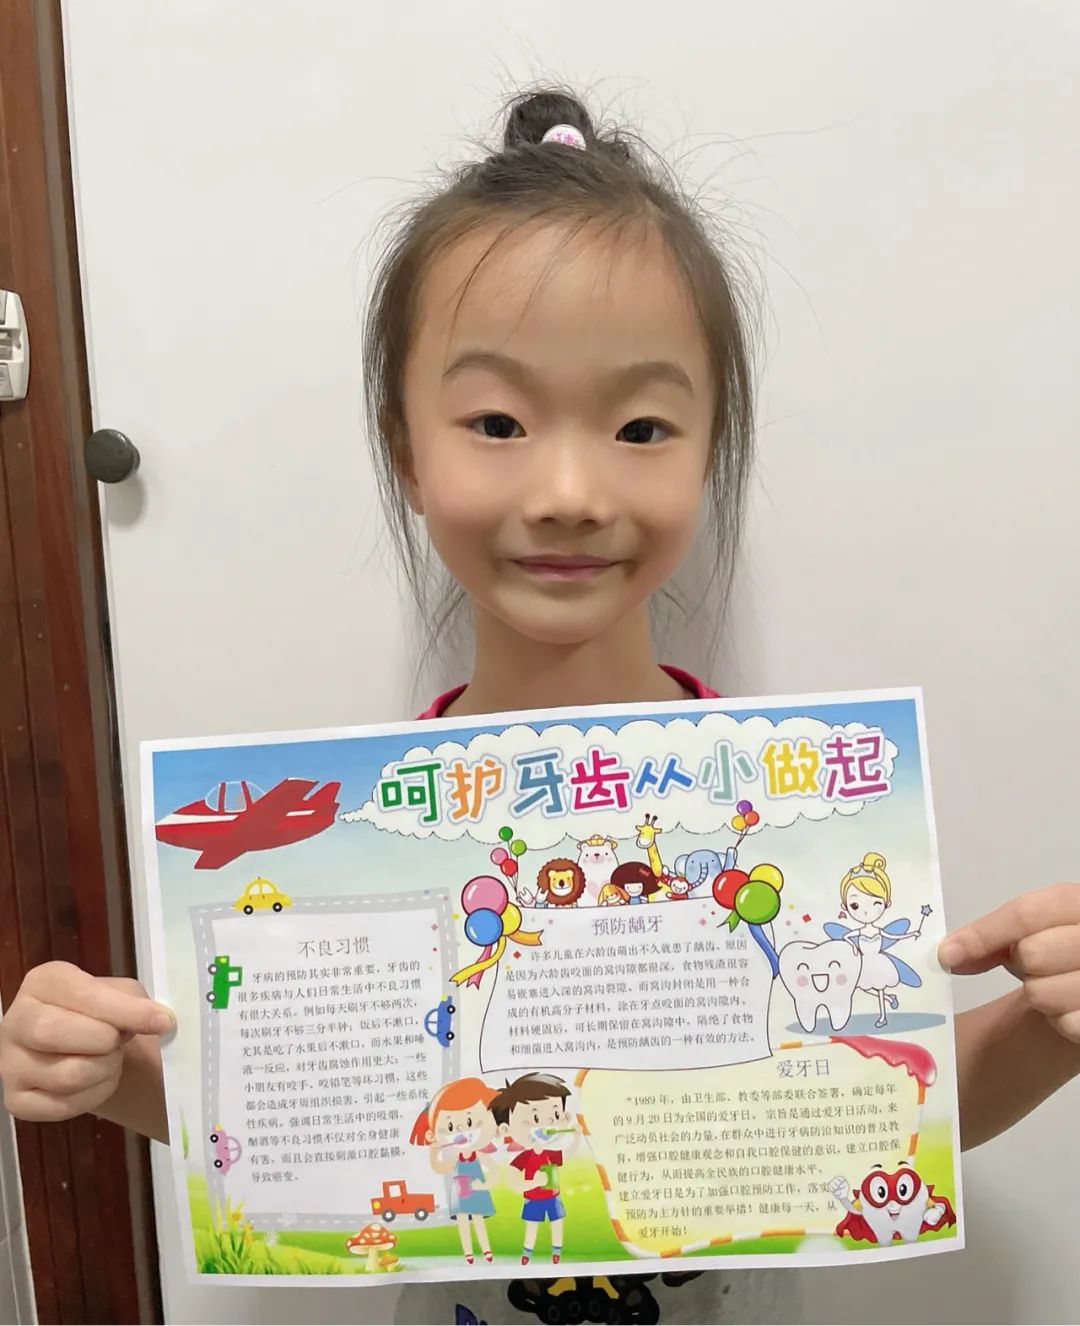 呵护牙齿从小做起
不良习惯
牙病的预防其实非常重要，牙齿的
很多疾病与人们日常生活中不良习惯
有很大关系。例如每天刷牙不够两次，
每次刷牙不够三分半钟；饭后不漱口，
尤其是吃了水果后不漱口，而水果和唾
液一反应，对牙齿腐蚀作用更大；一些
小朋友有咬手、咬铅笔等坏习惯，这些
都会造成牙周组织损害，引起一些系统
性疾病。强调日常生活中的吸烟、
酗酒等不良习惯不仅对全身健康
有害，而且会直接刺激口腔黏膜，
导致癌变。
预防龋牙
许多儿童在六龄齿萌出不久就患了龋齿。原因
是因为六龄齿咬面的窝沟隙都很深，食物残渣很容
易嵌塞进入深的窝沟裂隙。而窝沟封闭是用一种合
成的有机高分子材料，涂在牙点咬面的窝沟隙内。
材料硬固后，可长期保留在窝沟隙中，隔绝了食物
和细菌进入窝沟内，是预防龋齿的一种有效的方法。
爱牙日
“1989 年，由卫生部、教委等部委联合签署，确定每年
的 9 月 20 日为全国的爱牙日。宗旨是通过爱牙日活动，来
广泛动员社会的力量，在群众中进行牙病防治知识的普及教
育，增强口腔健康观念和自我口腔保健的意识，建立口腔保
健行为，从而提高全民族的口腔健康水平。
建立爱牙日是为了加强口腔预防工作，落实
预防为主方针的重要举措！健康每一天，从
爱牙开始！